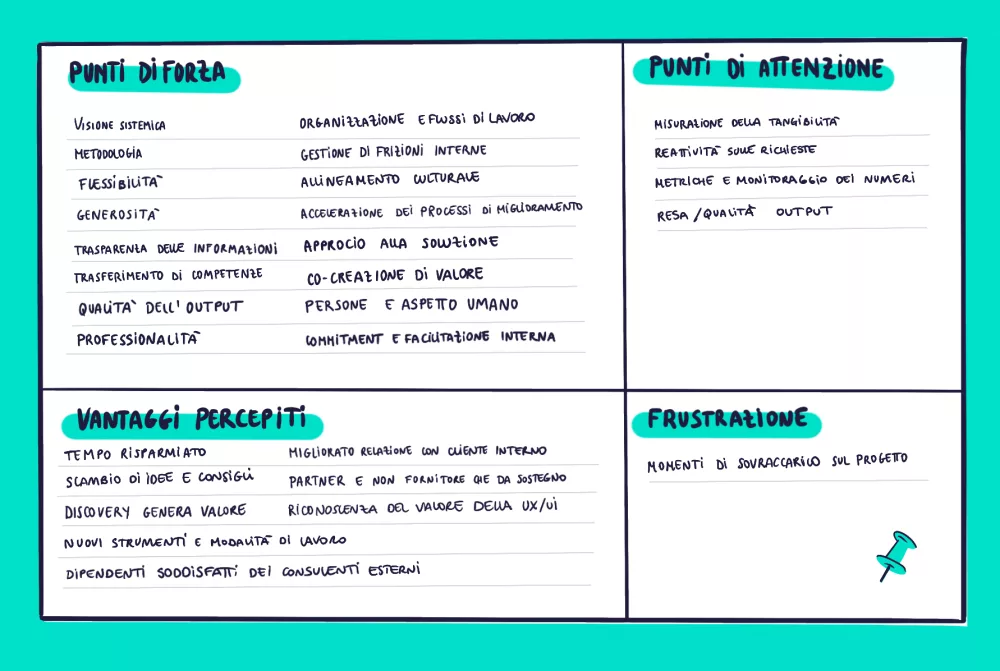 PUNTI DI FORZA
VISIONE SISTEMICA
METODOLOGIA
FLESSIBILITÀ
GENEROSITÀ
TRASPARENZA DELLE INFORMAZIONI
TRASFERIMENTO DI COMPETENZE
QUALITÀ DELL'OUTPUT
PROFESSIONALITÀ
ORGANIZZAZIONE E FLUSSI DI LAVORO
GESTIONE DI FRIZIONI INTERNE
ALLINEAMENTO CULTURALE
ACCELERAZIONE DEI PROCESSI DI MIGLIORAMENTO
APPROCIO ALLA SOLUZIONE
CO-CREAZIONE DI VALORE
PERSONE E ASPETTO UMANO
COMMITMENT E FACILITAZIONE INTERNA
PUNTI DI ATTENZIONE
MISURAZIONE DELLA TANGIBILITÀ
REATTIVITÀ SULLE RICHIESTE
METRICHE E MONITORAGGIO DEI NUMERI
RESA/QUALITÀ OUTPUT
VANTAGGI PERCEPITI
TEMPO RISPARMIATO
SCAMBIO DI IDEE E CONSIGLI
DISCOVERY GENERA VALORE
NUOVI STRUMENTI E MODALITÀ DI LAVORO
DIPENDENTI SODDISFATTI DEI CONSULENTI ESTERNI
MIGLIORATO RELAZIONE CON CLIENTE INTERNO
PARTNER E NON FORNITORE CHE DA SOSTEGNO
RICONOSCENZA DEL VALORE DELLA UX/UI
FRUSTRAZIONE
MOMENTI DI SOVRACCARICO SUL PROGETTO